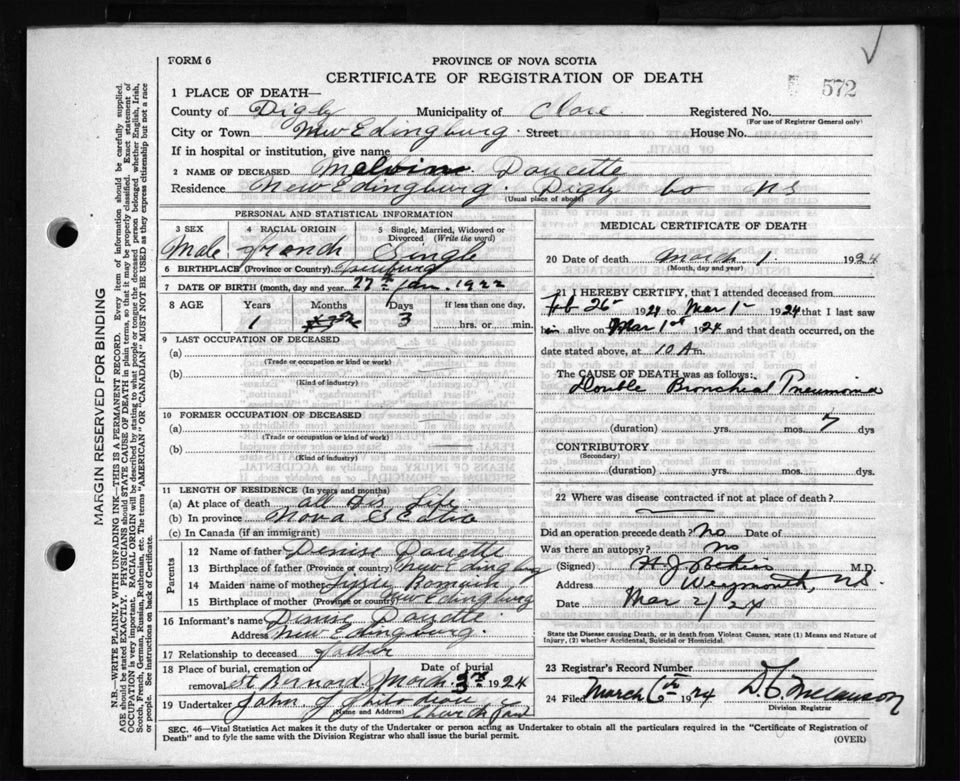 FORM 6
PROVINCE OF NOVA SCOTIA
CERTIFICATE OF REGISTRATION OF DEATH
572
1 PLACE OF DEATH—
County of Digby Municipality of Clare Registered No.
(For use of Registrar General only)
City or Town New Edingburg. Street House No.
If in hospital or institution, give name
2 NAME OF DECEASED Melvin Doucette
Residence New Edingburg. Digby Co NS
(Usual place of abode)
PERSONAL AND STATISTICAL INFORMATION
3 SEX 4 RACIAL ORIGIN 5 Single, Married, Widowed or Divorced (Write the word)
Male French Single
6 BIRTHPLACE (Province or Country)
7 DATE OF BIRTH (month, day and year) 27th Jan. 1922
8 AGE Years Months Days If less than one day,
1 3 hrs. or min.
9 LAST OCCUPATION OF DECEASED
(a)
(Trade or occupation or kind or work)
(b)
(Kind of industry)
10 FORMER OCCUPATION OF DECEASED
(a)
(Trade or occupation or kind or work)
(b)
(Kind of industry)
11 LENGTH OF RESIDENCE (In years and months)
(a) At place of death all his Life
(b) In province Nova Scotia
(c) In Canada (if an immigrant)
Parents
12 Name of father Denise Doucette
13 Birthplace of father (Province or country) New Edingburg
14 Maiden name of mother
15 Birthplace of mother (Province or country) New Edingburg
16 Informant's name Denise Doucette
Address New Edingburg.
17 Relationship to deceased father
18 Place of burial, cremation or removal St Bernard Date of burial March 3rd 1924
19 Undertaker John
(Name and Address)
MEDICAL CERTIFICATE OF DEATH
20 Date of death March 1 1924
(Month, day and year)
21 I HEREBY CERTIFY, that I attended deceased from
Feb 26 1924 to Mar 1 1924 that I last saw
him alive on Mar 1st 1924 and that death occurred, on the
date stated above, at 10 Am.
The CAUSE OF DEATH was as follows:
Double Bronchial Pneumonia
(duration) yrs. mos. 7 dys
CONTRIBUTORY
(Secondary)
(duration) yrs. mos. dys.
22 Where was disease contracted if not at place of death?
Did an operation precede death? No Date of
Was there an autopsy? No
(Signed) M.D.
Address Weymouth, N.S.
Date Mar 2/24
State the Disease causing Death, or in death from Violent Causes, state (1) Means and Nature of
Injury, (2) whether Accidental, Suicidal or Homicidal.
23 Registrar's Record Number
24 Filed March 6th 1924
Division Registrar
SEC. 46—Vital Statistics Act makes it the duty of the Undertaker or person acting as Undertaker to obtain all the particulars required in the "Certificate of Registration of
Death" and to fyle the same with the Division Registrar who shall issue the burial permit.
(OVER)
MARGIN RESERVED FOR BINDING
N.B.—WRITE PLAINLY WITH UNFADING INK—THIS IS A PERMANENT RECORD. Every item of information should be carefully supplied.
AGE should be stated EXACTLY. PHYSICIANS should STATE CAUSE OF DEATH in plain terms, so that it may be properly classified. Exact statement of
OCCUPATION is very important. RACIAL ORIGIN will be described by stating to what people or tongue the deceased person belonged whether English, Irish,
Scotch, French, German, Russian, Ruthenian, etc. The terms "AMERICAN" OR "CANADIAN" MUST NOT BE USED as they express citizenship but not a race
or people. See Instructions on back of Certificate.